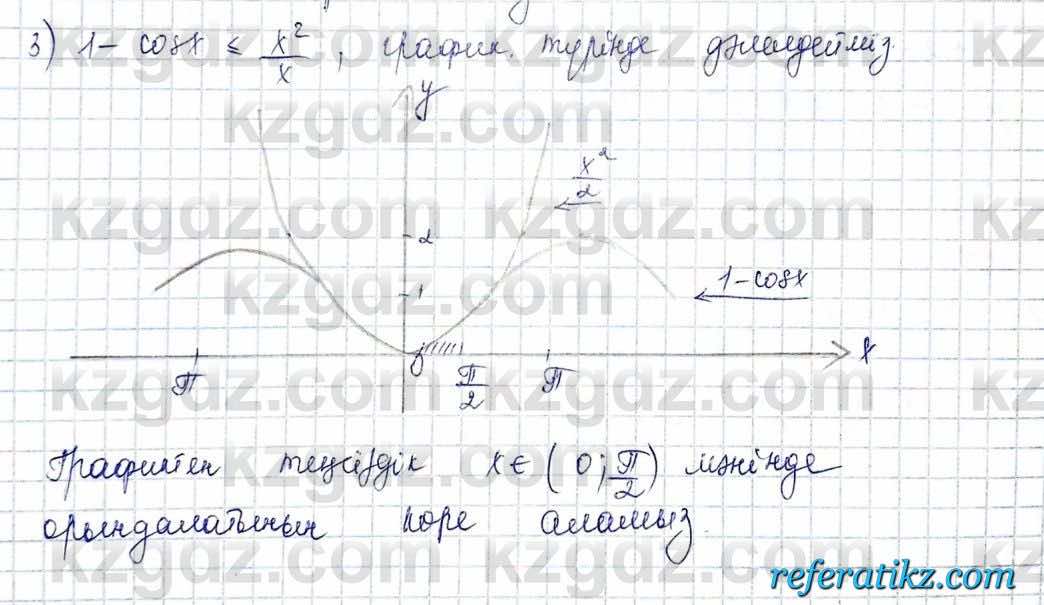 3) 1 - cos x ≤ x²/x, график. түрінде дәлелдейміз.
y
x²/2
2
1 - cos x
1
0
x
π
π/2
π
Графиктен теңсіздік x ∈ (0; π/2) мәнінде
орындалатынын көре аламыз.
kzgdz.com
referatikz.com